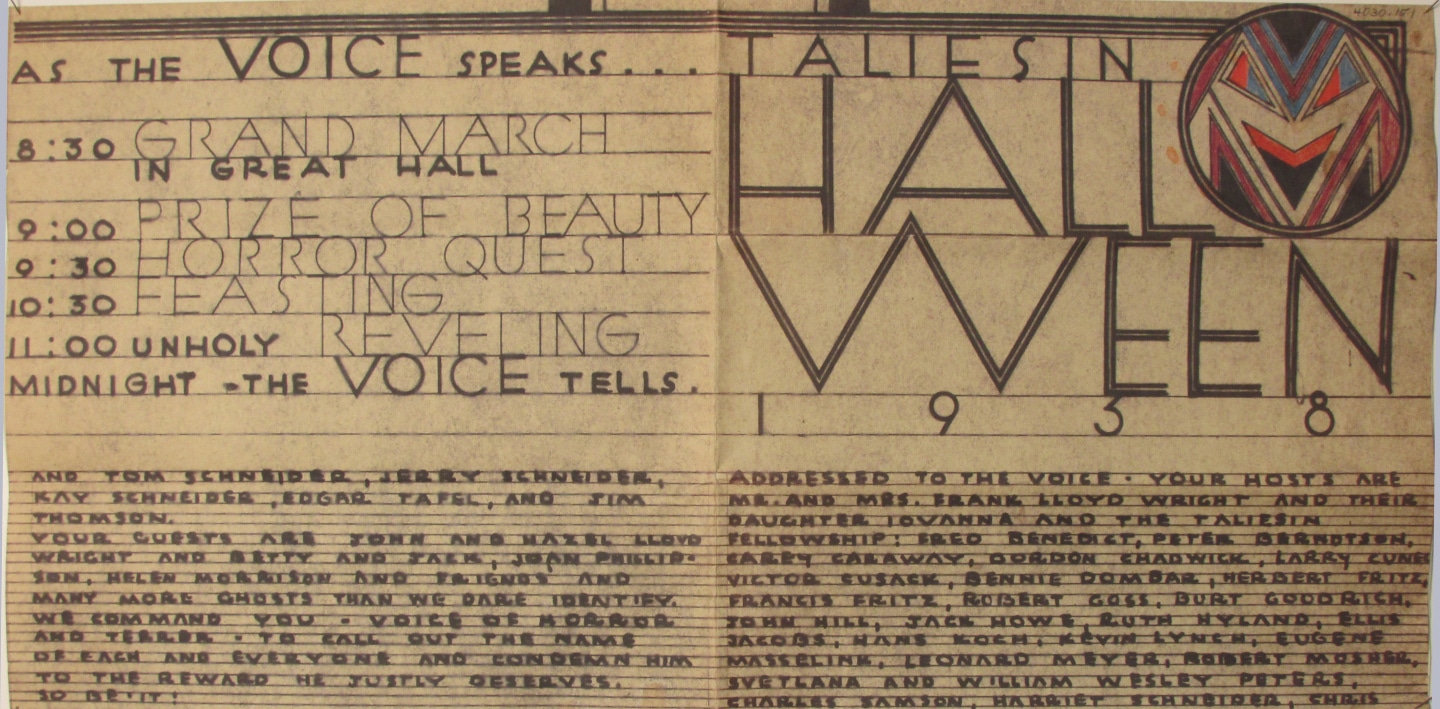 AS THE VOICE SPEAKS...
8:30 GRAND MARCH
IN GREAT HALL
9:00 PRIZE OF BEAUTY
9:30 HORROR QUEST
10:30 FEASTING
11:00 UNHOLY REVELING
MIDNIGHT - THE VOICE TELLS.
AND TOM SCHNEIDER, JERRY SCHNEIDER,
KAY SCHNEIDER, EDGAR TAFEL, AND JIM
THOMSON.
YOUR GUESTS ARE JOHN AND HAZEL LLOYD
WRIGHT AND BETTY AND JACK, JOAN PHILLIP-
SON, HELEN MORRISON AND FRIENDS AND
MANY MORE GHOSTS THAN WE DARE IDENTIFY.
WE COMMAND YOU - VOICE OF HORROR
AND TERROR - TO CALL OUT THE NAME
OF EACH AND EVERYONE AND CONDEMN HIM
TO THE REWARD HE JUSTLY DESERVES.
SO BE IT!
4030.151
TALIESIN
HALLO
WEEN
1938
ADDRESSED TO THE VOICE - YOUR HOSTS ARE
MR. AND MRS. FRANK LLOYD WRIGHT AND THEIR
DAUGHTER IOVANNA AND THE TALIESIN
FELLOWSHIP: FRED BENEDICT, PETER BERNDTSON,
CAREY CARAWAY, GORDON CHADWICK, LARRY CUNE
VICTOR CUSACK, BENNIE DOMBAR, HERBERT FRITZ,
FRANCIS FRITZ, ROBERT GOSS, BURT GOODRICH,
JOHN HILL, JACK HOWE, RUTH HYLAND, ELLIS
JACOBS, HANS KOCH, KEVIN LYNCH, EUGENE
MASSELINK, LEONARD MEYER, ROBERT MOSHER,
SVETLANA AND WILLIAM WESLEY PETERS,
CHARLES SAMSON, HARRIET SCHNEIDER, CHRIS